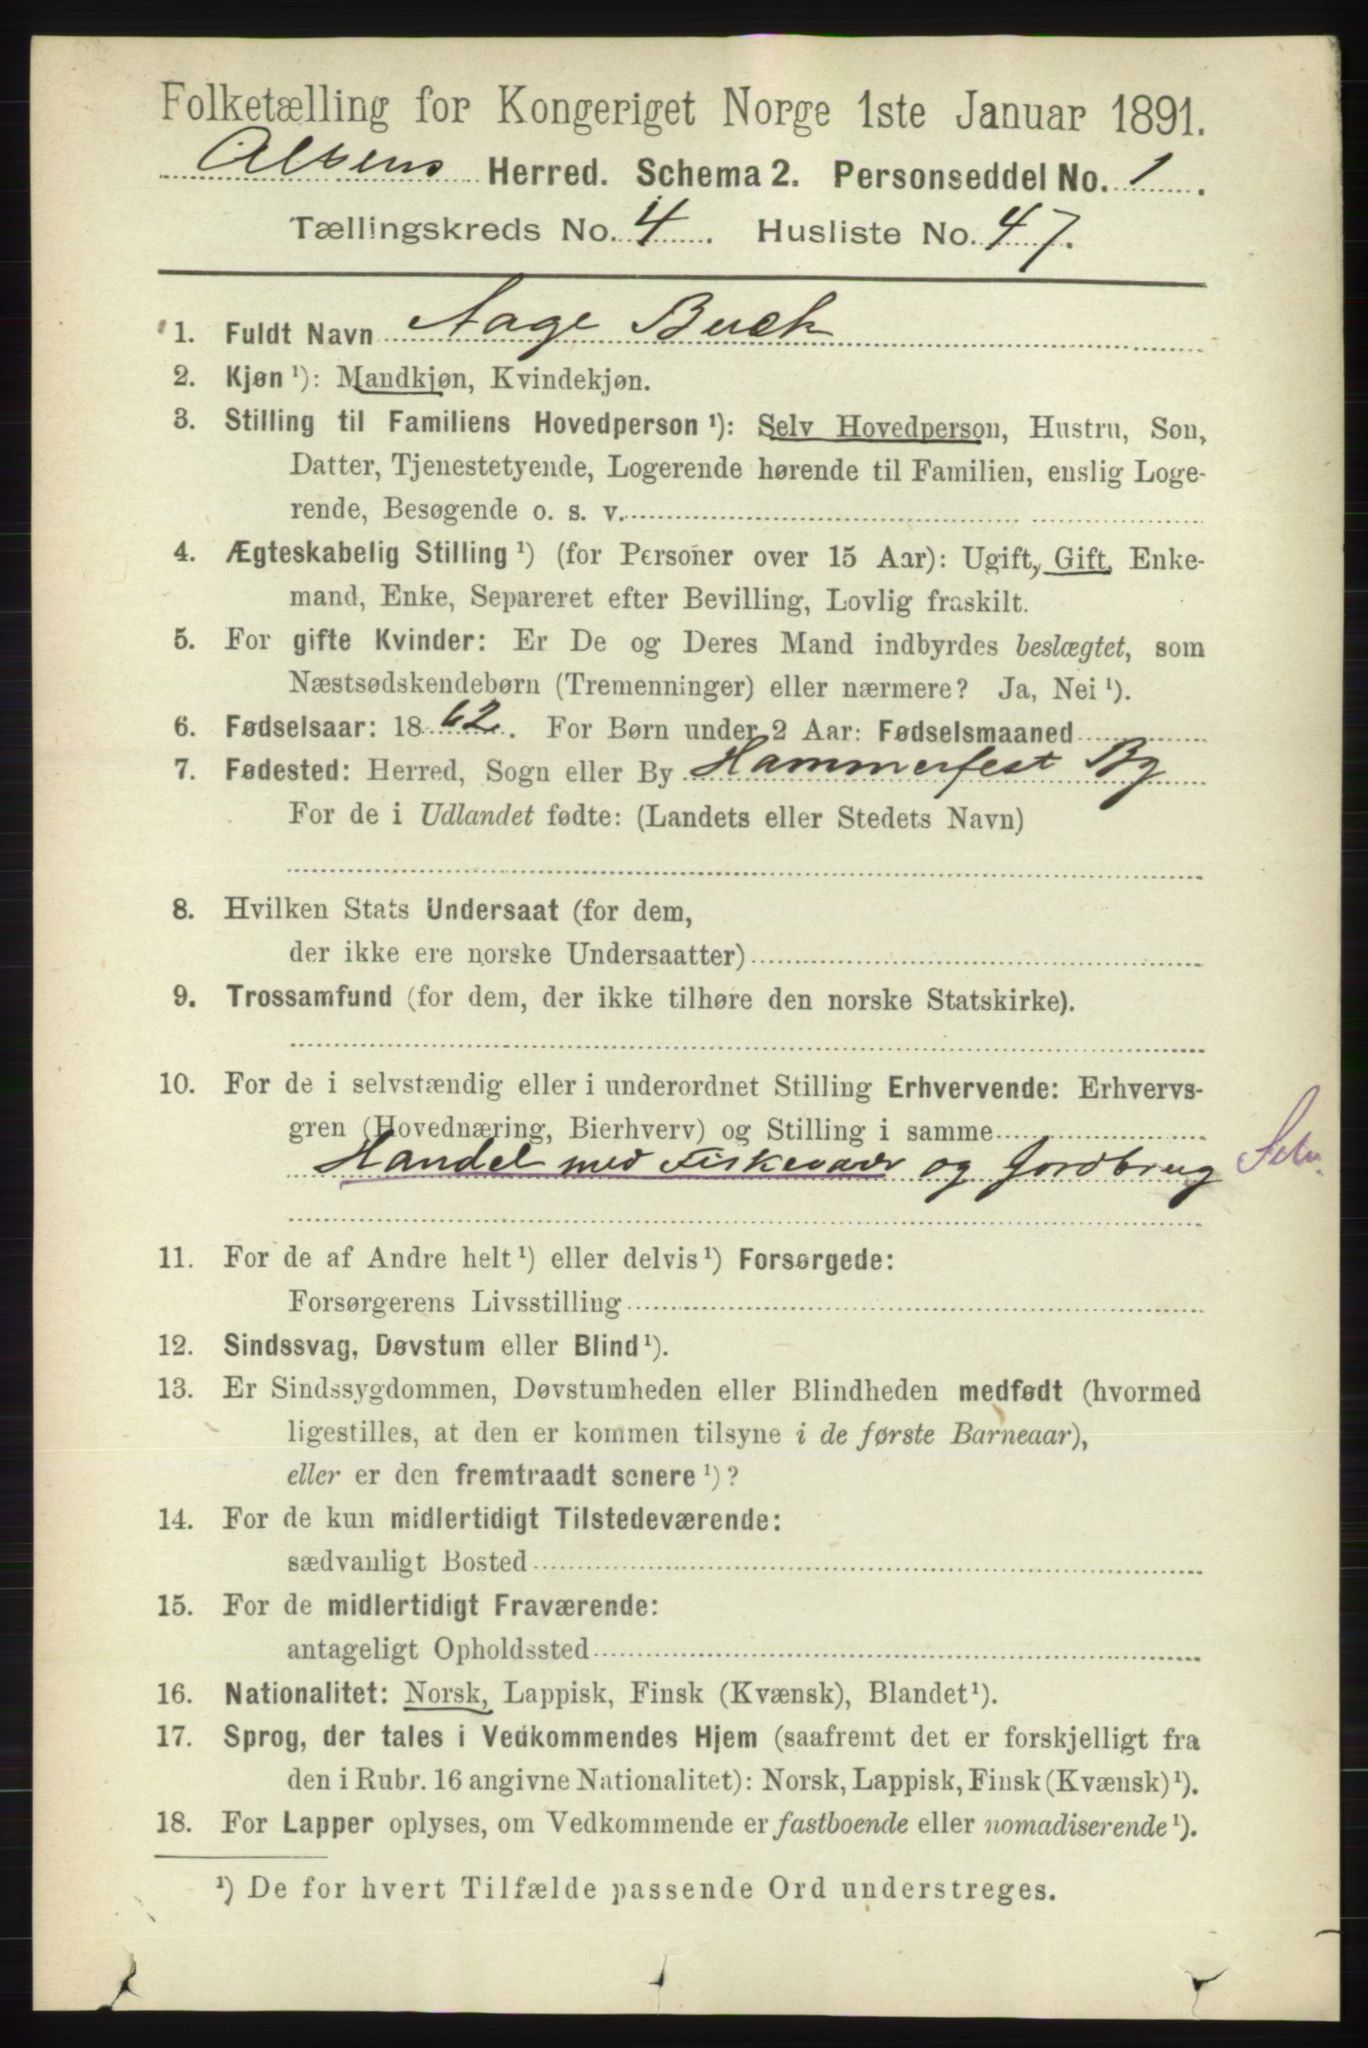 Folketælling for Kongeriget Norge 1ste Januar 1891.
Herred. Schema 2. Personseddel No. 1.
Tællingskreds No. 4. Husliste No. 47.
1. Fuldt Navn Aage Buck
2. Kjøn ¹): Mandkjøn, Kvindekjøn.
3. Stilling til Familiens Hovedperson ¹): Selv Hovedperson, Hustru, Søn,
Datter, Tjenestetyende, Logerende hørende til Familien, enslig Loge-
rende, Besøgende o. s. v.
4. Ægteskabelig Stilling ¹) (for Personer over 15 Aar): Ugift, Gift, Enke-
mand, Enke, Separeret efter Bevilling, Lovlig fraskilt.
5. For gifte Kvinder: Er De og Deres Mand indbyrdes beslægtet, som
Næstsødskendebørn (Tremenninger) eller nærmere? Ja, Nei ¹).
6. Fødselsaar: 1862. For Børn under 2 Aar: Fødselsmaaned
7. Fødested: Herred, Sogn eller By Hammerfest By
For de i Udlandet fødte: (Landets eller Stedets Navn)
8. Hvilken Stats Undersaat (for dem,
der ikke ere norske Undersaatter)
9. Trossamfund (for dem, der ikke tilhøre den norske Statskirke).
10. For de i selvstændig eller i underordnet Stilling Erhvervende: Erhvervs-
gren (Hovednæring, Bierhverv) og Stilling i samme
Handel med Fiskevarer og Jordbrug
11. For de af Andre helt ¹) eller delvis ¹) Forsørgede:
Forsørgerens Livsstilling
12. Sindssvag, Døvstum eller Blind ¹).
13. Er Sindssygdommen, Døvstumheden eller Blindheden medfødt (hvormed
ligestilles, at den er kommen tilsyne i de første Barneaar),
eller er den fremtraadt senere ¹)?
14. For de kun midlertidigt Tilstedeværende:
sædvanligt Bosted
15. For de midlertidigt Fraværende:
antageligt Opholdssted
16. Nationalitet: Norsk, Lappisk, Finsk (Kvænsk), Blandet ¹).
17. Sprog, der tales i Vedkommendes Hjem (saafremt det er forskjelligt fra
den i Rubr. 16 angivne Nationalitet): Norsk, Lappisk, Finsk (Kvænsk) ¹).
18. For Lapper oplyses, om Vedkommende er fastboende eller nomadiserende ¹).
¹) De for hvert Tilfælde passende Ord understreges.